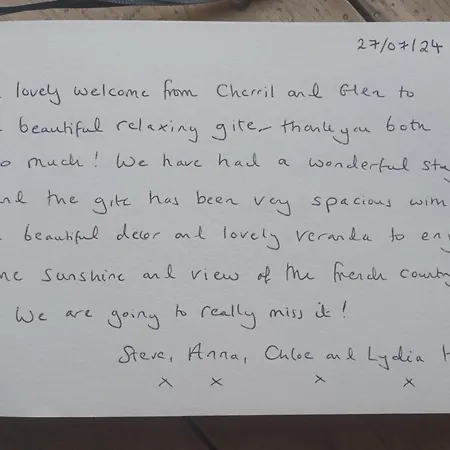 27/07/24
lovely welcome from Cherril and Glen to
beautiful relaxing gite - thankyou both
so much! We have had a wonderful stay
and the gite has been very spacious with
beautiful decor and lovely veranda to enj
the sunshine and view of the french country
We are going to really miss it!
Steve, Anna, Chloe and Lydia H
x x x x